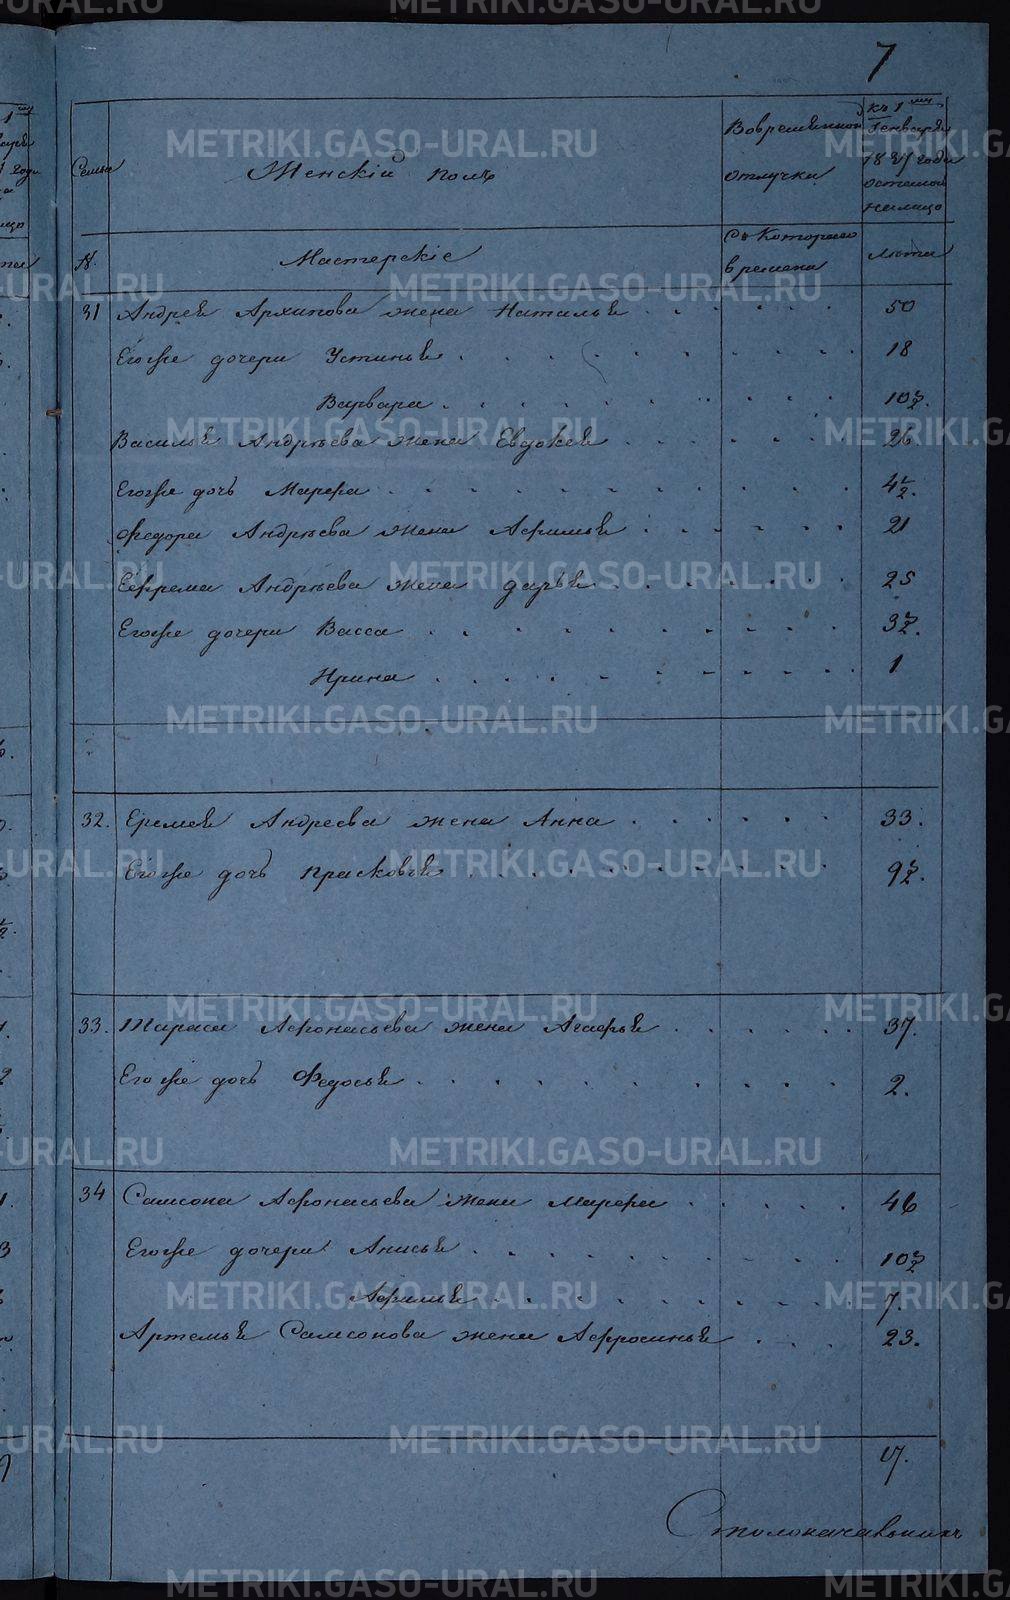 7
Семьи
Женскiй полъ
Вовременной
отлучки
къ 1му
Генваря
года
осталой
налицо
N.
Мастерскiе
Съ Котораго
времени
лѣта
31 Андрея Архипова жена Наталья . . . . . . 50
Егоже дочери Устинья . . . . . . . . . 18
Варвара . . . . . . . . . 10½.
Василья Андрѣева жена Евдокея . . . . . . 26
Егоже дочь Марфа . . . . . . . . . . 4½.
Федора Андрѣева жена Афимья . . . . . . 21
Ефрема Андрѣева жена дарья . . . . . . 25
Егоже дочери Васса . . . . . . . . . 3½.
Ирина . . . . . . . . . 1
32. Еремея Андреева жена Анна . . . . . . 33.
Егоже дочь прасковья . . . . . . . . . 9½.
33. Тараса Афонасьева жена Агафья . . . . . . 37.
Егоже дочь Федосья . . . . . . . . . 2.
34 Самсона Афонасьева жена Марфа . . . . . 46
Егоже дочери Анисья . . . . . . . . . 10½
Афимья . . . . . . . . . 7.
Артемья Самсонова жена Афросинья . . . 23.
17.
Столоначальникъ
METRIKI.GASO-URAL.RU